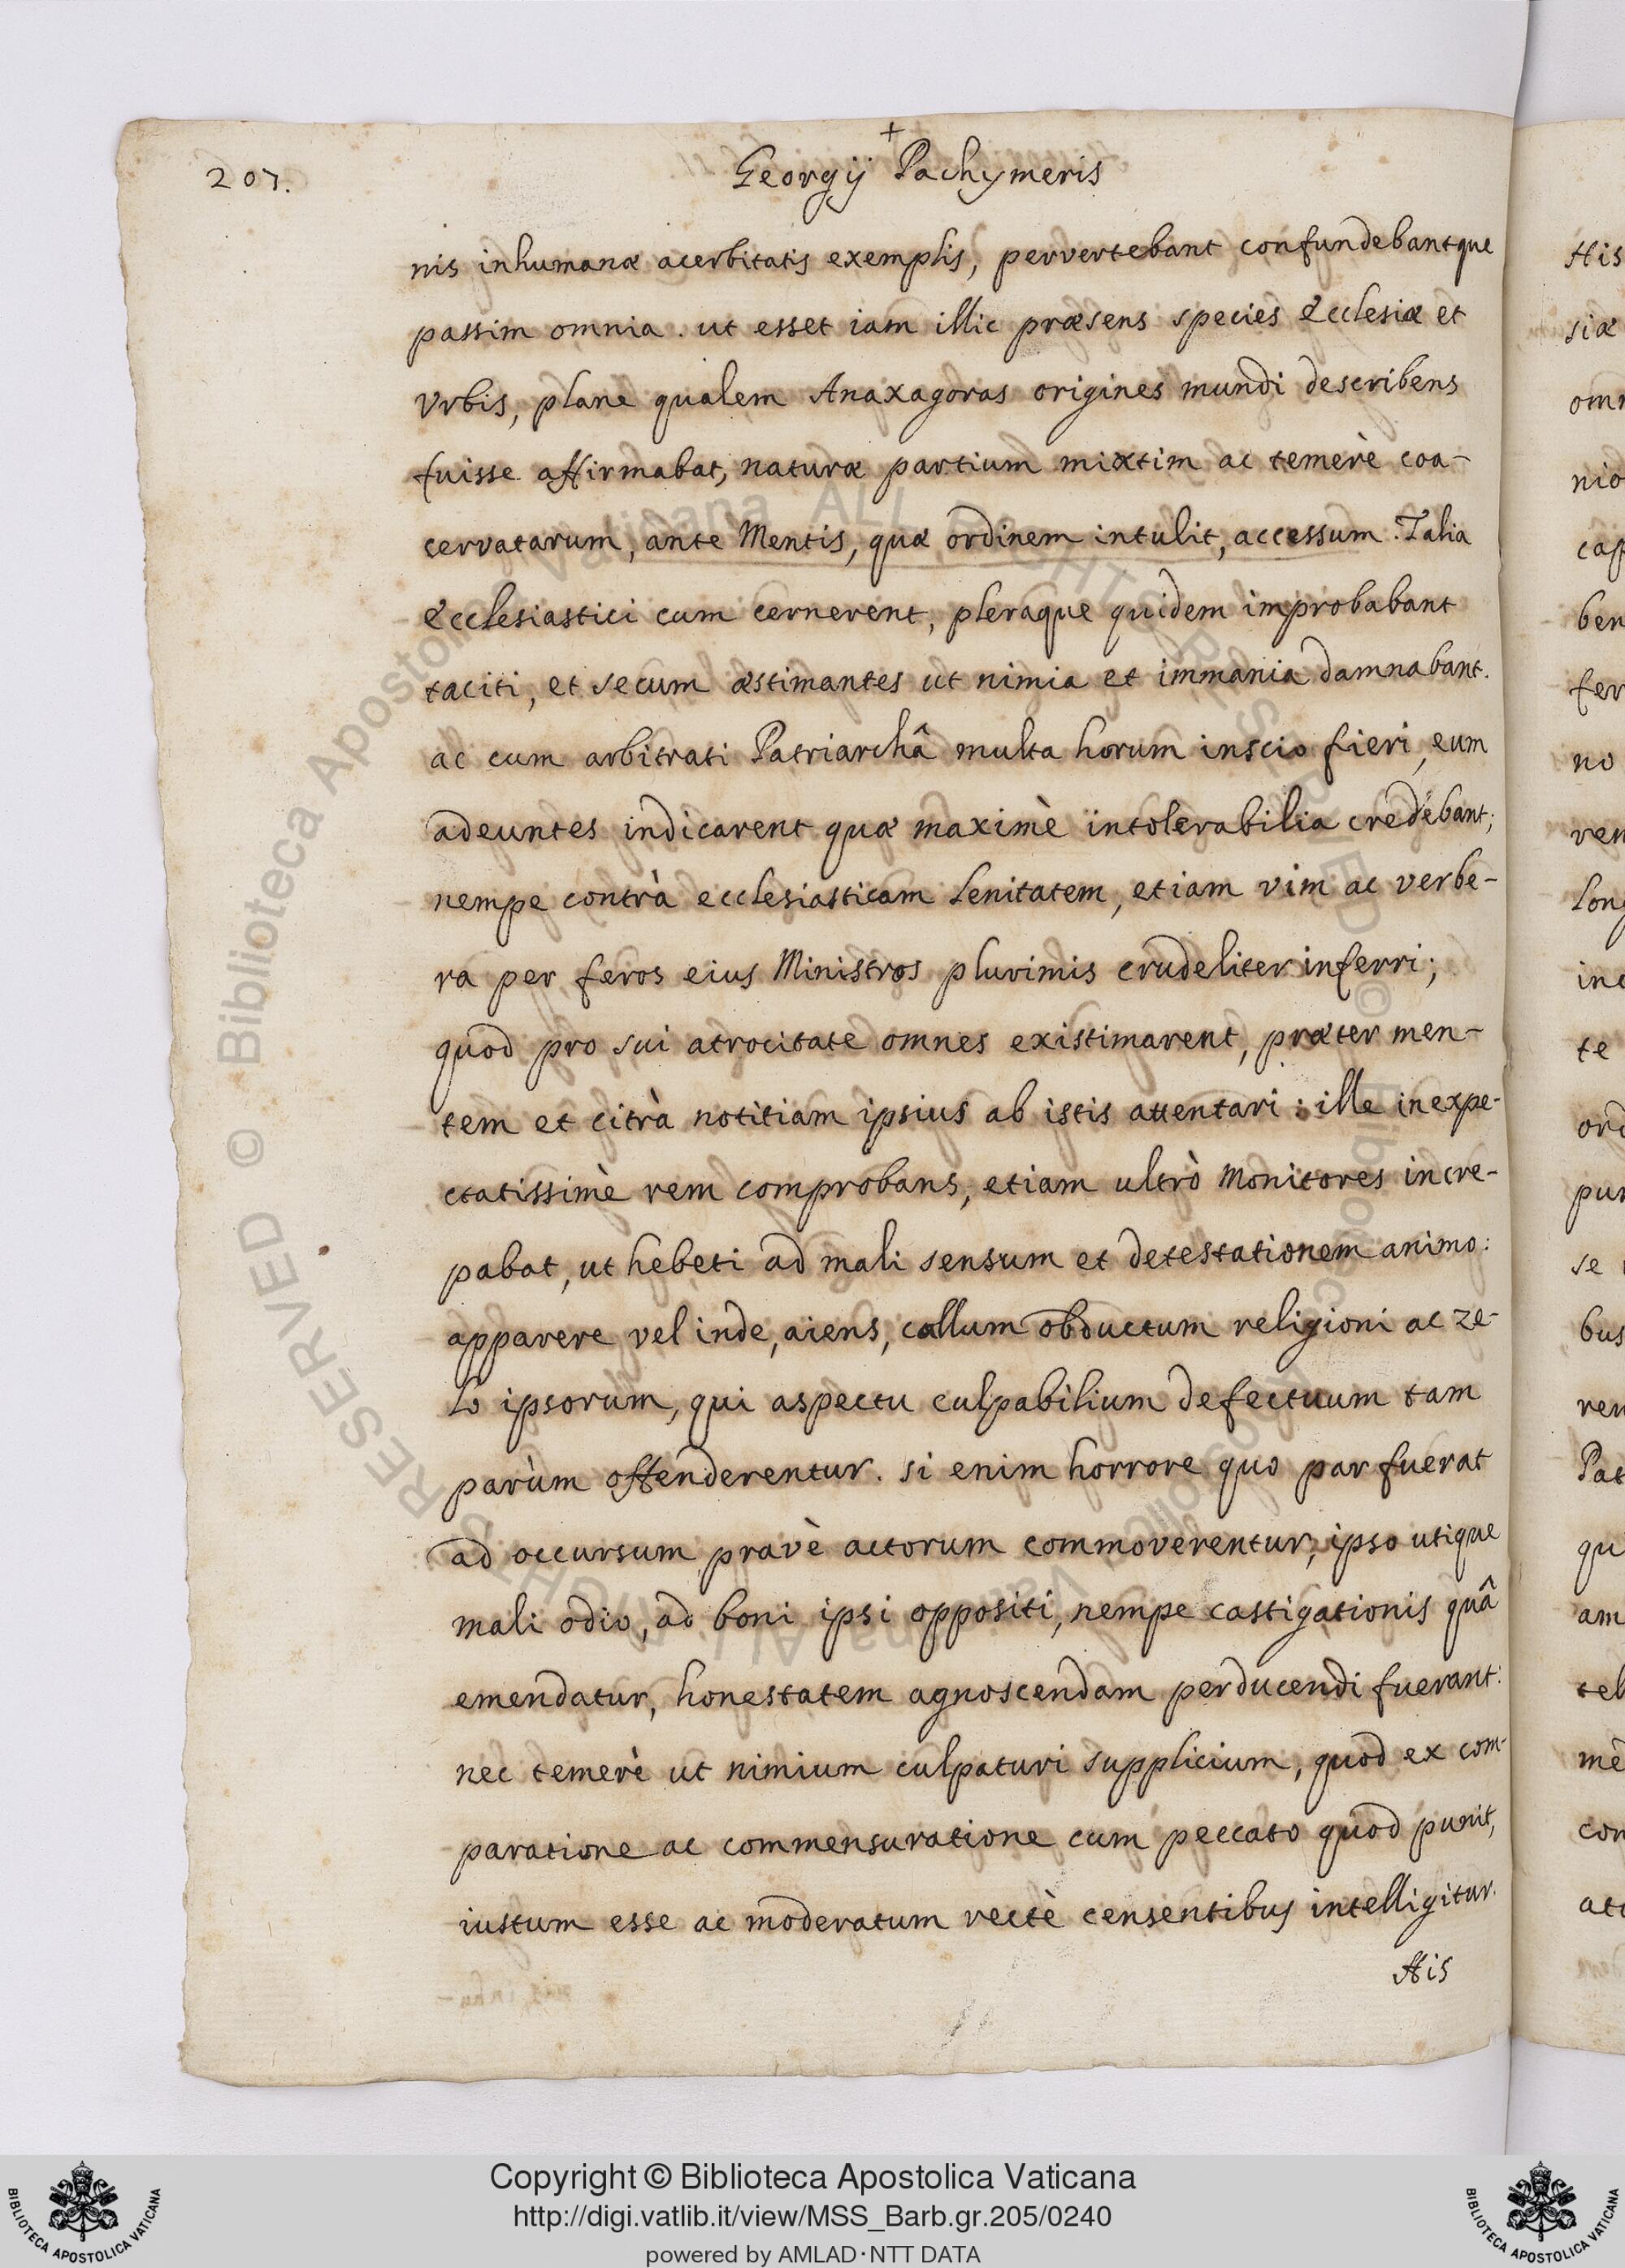 207.
+
Georgij Pachymeris
nis inhumanæ acerbitatis exemplis, pervertebant confundebantque
passim omnia. ut esset iam illic præsens species Ecclesiæ et
Vrbis, plane qualem Anaxagoras origines mundi describens
fuisse affirmabat, naturæ partium mixtim ac temerè coa-
cervatarum, ante Mentis, quæ ordinem intulit, accessum. Talia
Ecclesiastici cum cernerent, pleraque quidem improbabant
taciti, et secum æstimantes ut nimia et immania damnabant.
ac cum arbitrati Patriarchâ multa horum inscio fieri, eum
adeuntes indicarent quæ maximè intolerabilia credebant;
nempe contrà ecclesiasticam lenitatem, etiam vim ac verbe-
ra per feros eius Ministros plurimis crudeliter inferri;
quod pro sui atrocitate omnes existimarent, præter men-
tem et citrà notitiam ipsius ab istis attentari: ille inexpe-
ctatissimè rem comprobans, etiam ultrò Monitores incre-
pabat, ut hebeti ad mali sensum et detestationem animo:
apparere vel inde, aiens, callum obductum religioni ac ze-
lo ipsorum, qui aspectu culpabilium defectuum tam
parùm offenderentur. si enim horrore quo par fuerat
ad occursum pravè actorum commoverentur, ipso utique
mali odio, ad boni ipsi oppositi, nempe castigationis quâ
emendatur, honestatem agnoscendam perducendi fuerant:
nec temerè ut nimium culpaturi supplicium, quod ex com-
paratione ac commensuratione cum peccato quod punit,
iustum esse ac moderatum rectè censentibus intelligitur.
His
His
siæ
Copyright © Biblioteca Apostolica Vaticana
http://digi.vatlib.it/view/MSS_Barb.gr.205/0240
powered by AMLAD·NTT DATA
BIBLIOTECA APOSTOLICA VATICANA
BIBLIOTECA APOSTOLICA VATICANA